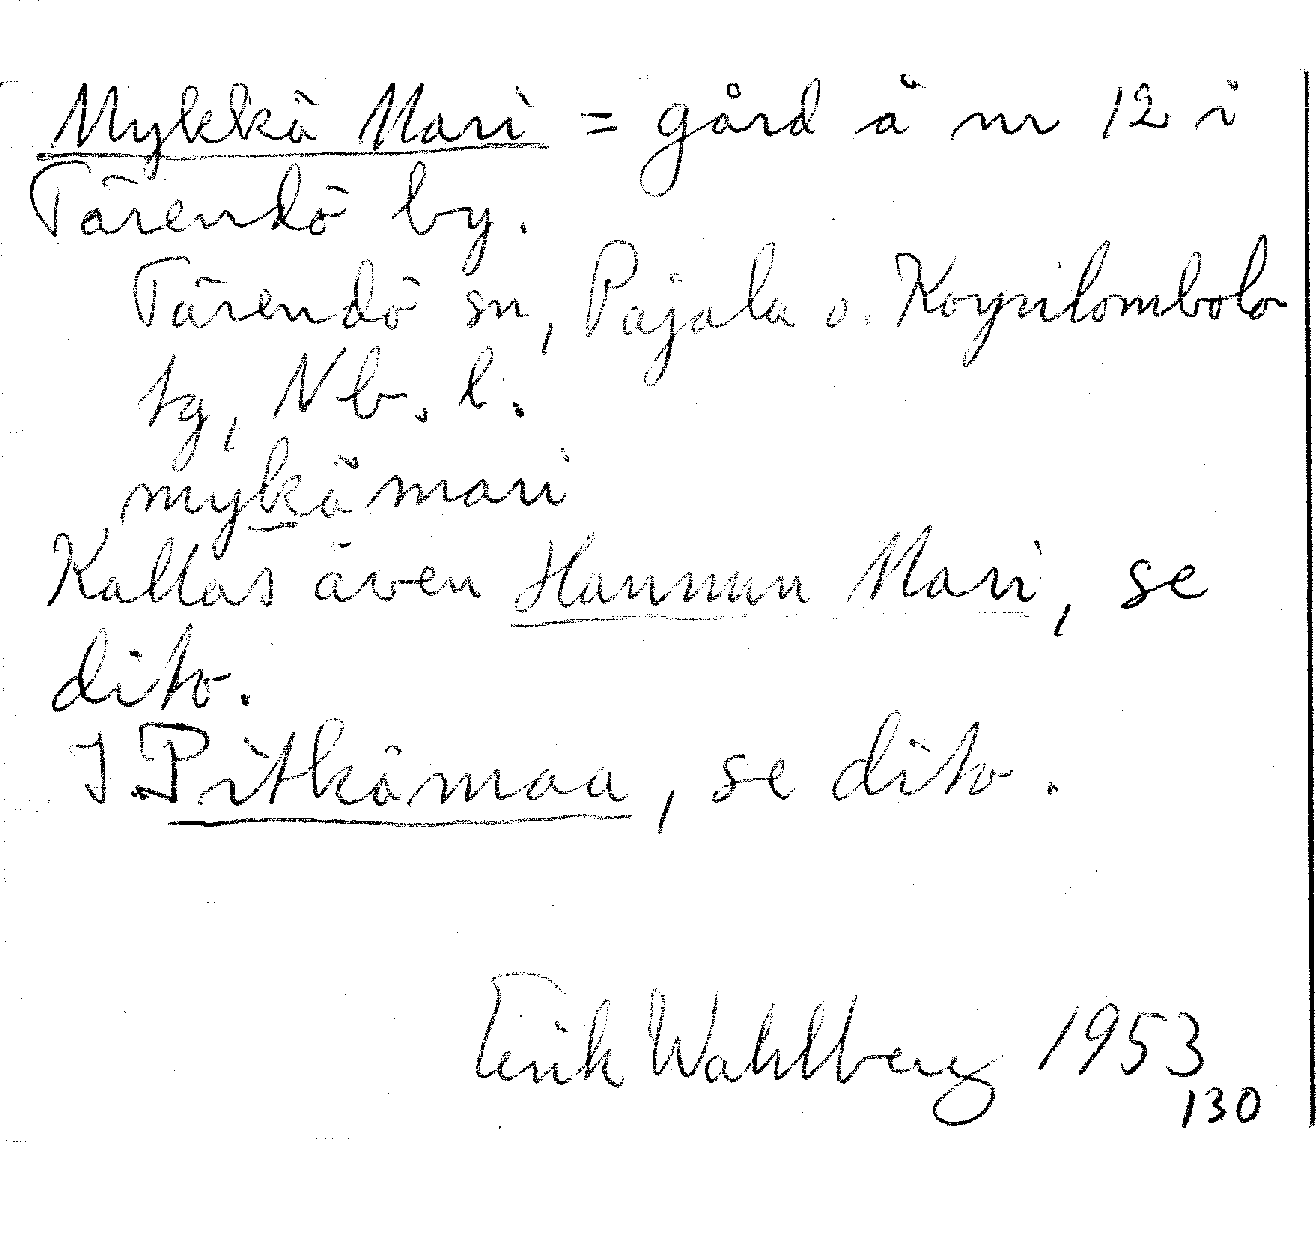 Mykkä Mari = gård å nr 12 i
Tärendö by.
Tärendö sn, Pajala o. Korpilombolo
tg, Nb. l.
mykämari
Kallas även Hannun Mari, se
dito.
I Pitkämaa, se dito.
Erik Wahlberg 1953
130